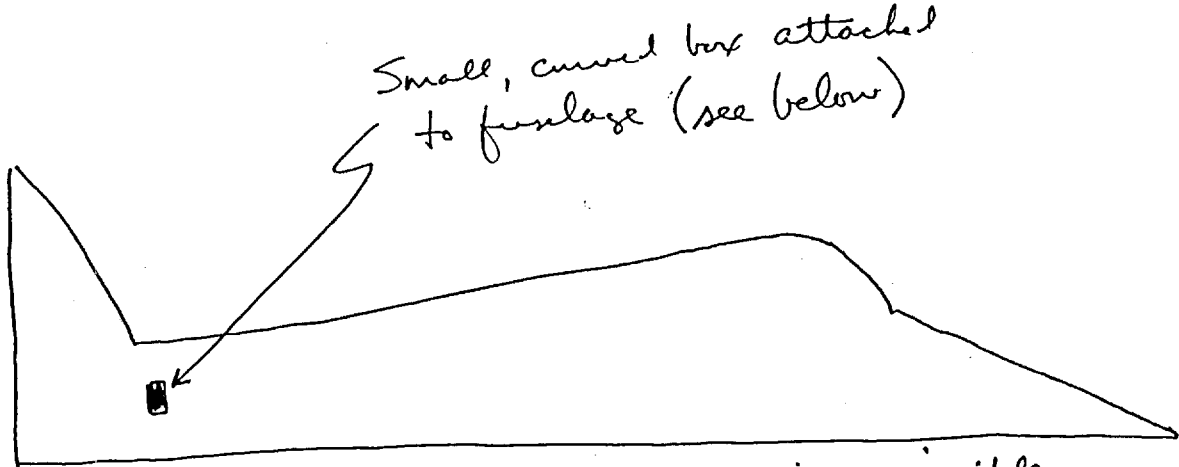 Small, curved box attached
to fuselage (see below)